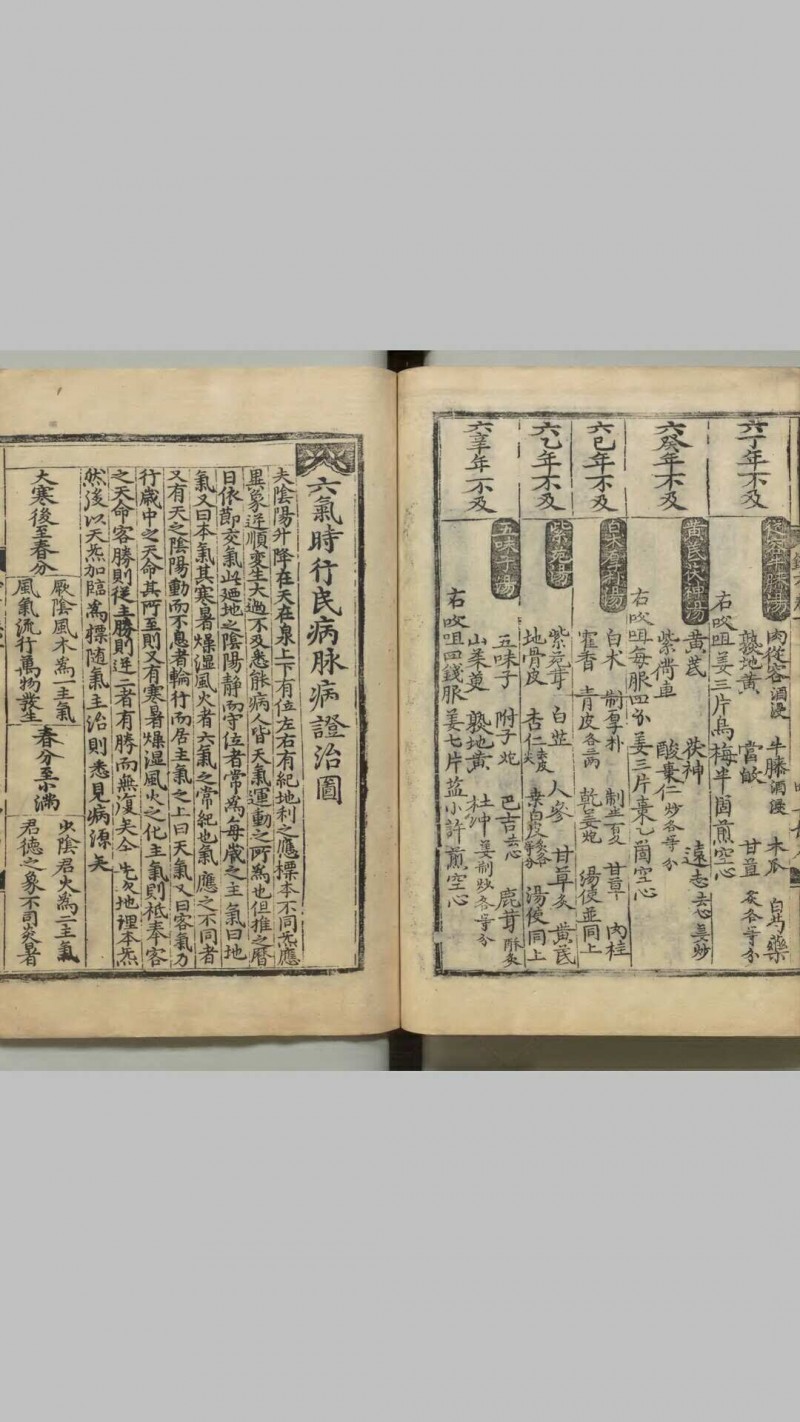 六丁年不及
苁蓉牛膝湯
肉苁容酒浸 牛膝酒浸 木瓜 白芍藥
熟地黄 當歸 甘草炙各等分
右㕮咀姜三片烏梅半箇煎空心
六癸年不及
黄芪茯神湯
黄芪 茯神 遠志去心姜炒
紫荷車 酸棗仁炒各等分
右㕮咀每服四分姜三片棗乙箇煎空心
六己年不及
白术厚朴湯
白术 制厚朴 制半夏 甘草 肉桂
藿香 青皮各三兩 乾姜炮 湯使並同上
六乙年不及
紫菀湯
紫菀茸 白芷 人參 甘草炙 黄芪
地骨皮 杏仁 桑白皮 湯使同上
六辛年不及
五味子湯
五味子 附子炮 巴吉去心 鹿茸酥炙
山茱萸 熟地黄 杜仲姜制炒各等分
右㕮咀四錢服姜七片盐小許煎空心
六氣時行民病脉病證治圖
夫陰陽升降在天在泉上下有位左右有紀地利之應標本不同炁應
異象逆順變生大過不及悉能病人皆天氣運動之所爲也但推之曆
日依節交氣此廼地之陰陽靜而守位者常爲每歲之主氣曰地
氣又曰本氣其寒暑燥湿風火者六氣之常紀也氣應之不同者
又有天之陰陽動而不息者輪行而居主氣之上曰天氣又曰客氣乃
行歲中之天命其所至則又有寒暑燥湿風火之化主氣則祗奉客
之天命客勝則從主勝則逆二者有勝而無復矣今先以地理本炁
然後以天炁加臨爲標随氣主治則悉見病源矣
大寒後至春分
厥陰風木爲一主氣
風氣流行萬物發生
春分至小滿
少陰君火爲二主氣
君德之象不司炎暑